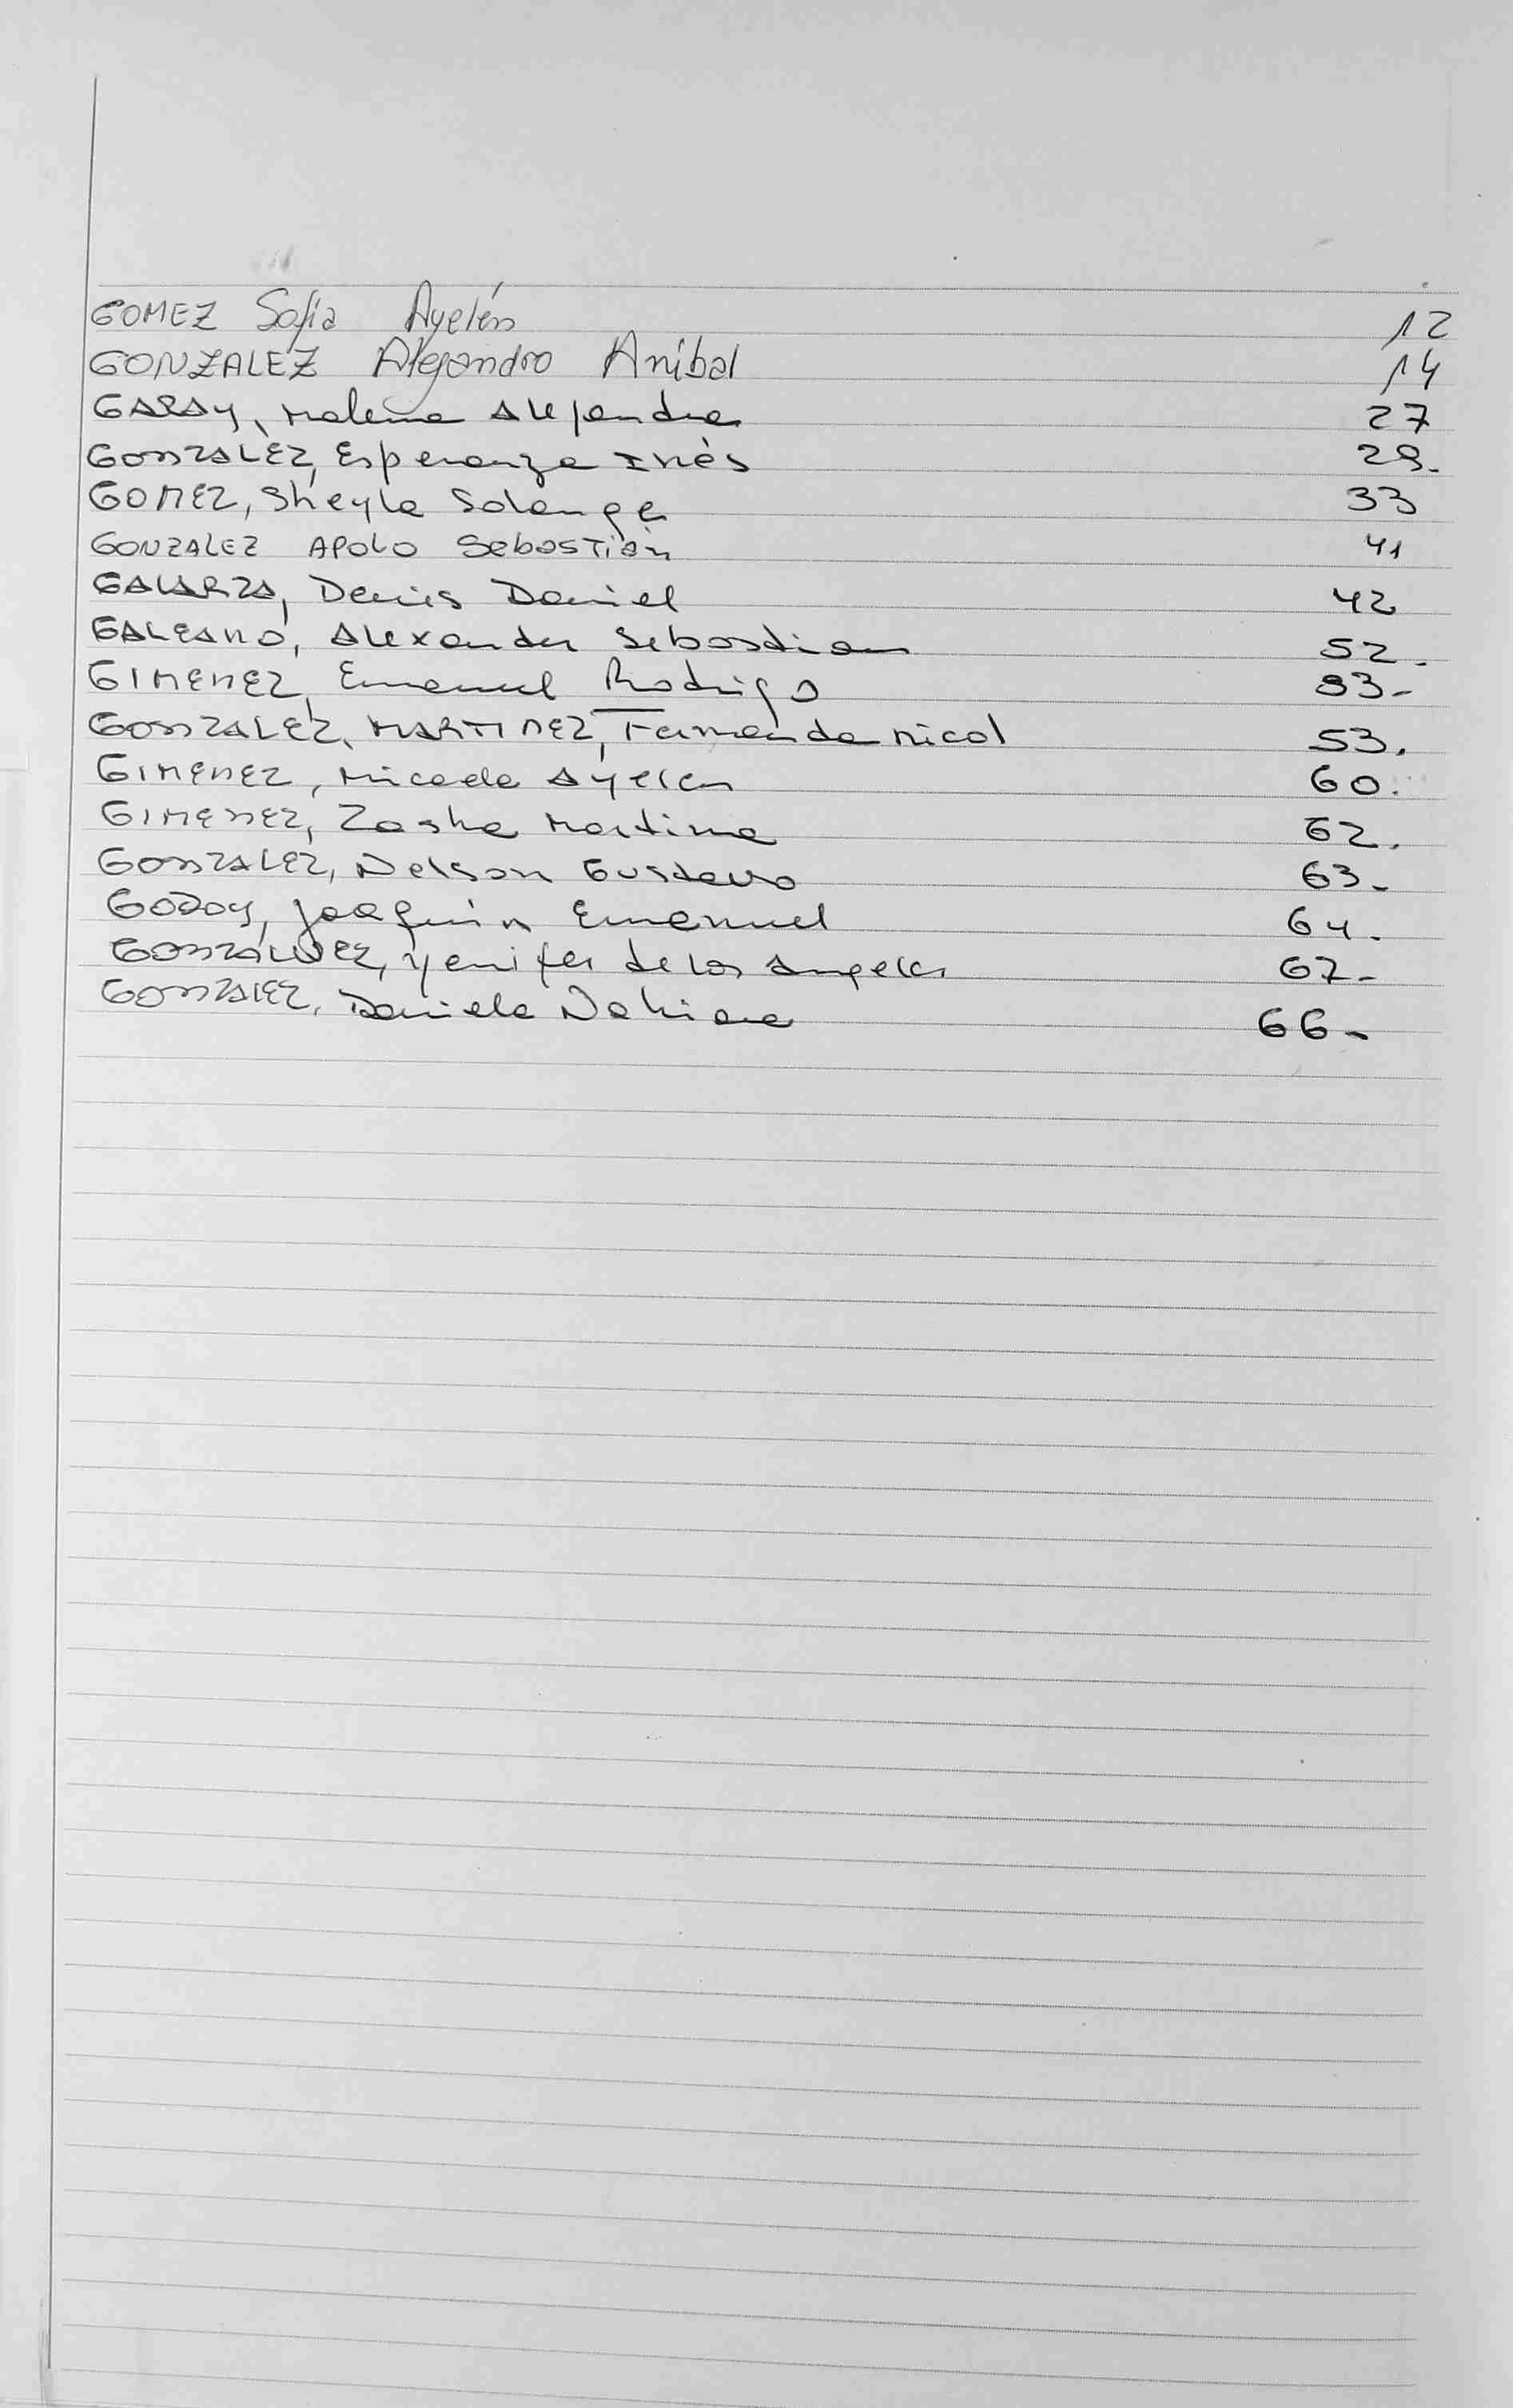 GOMEZ Sofia Ayelén 12
GONZALEZ Alejandro Anibal 14
GARAY, Malena Alejandra 27
GONZALEZ, Esperanza Inés 29.
GOMEZ, Sheyla Solange 33
GONZALEZ APOLO Sebastián 41
GALARZA, Denis Daniel 42
GALEANO, Alexander Sebastian 52.
GIMENEZ, Emanuel Rodrigo 83-
GONZALEZ, MARTINEZ, Fernanda Nicol 53.
GIMENEZ, Micaela Ayelen 60.
GIMENEZ, Zashe Martina 62.
GONZALEZ, Nelson Gustavo 63-
GODOY, Joaquin Emanuel 64.
GONZALEZ, Yenifer de los Angeles 67-
GONZALEZ, Daniela Nahiara 66-